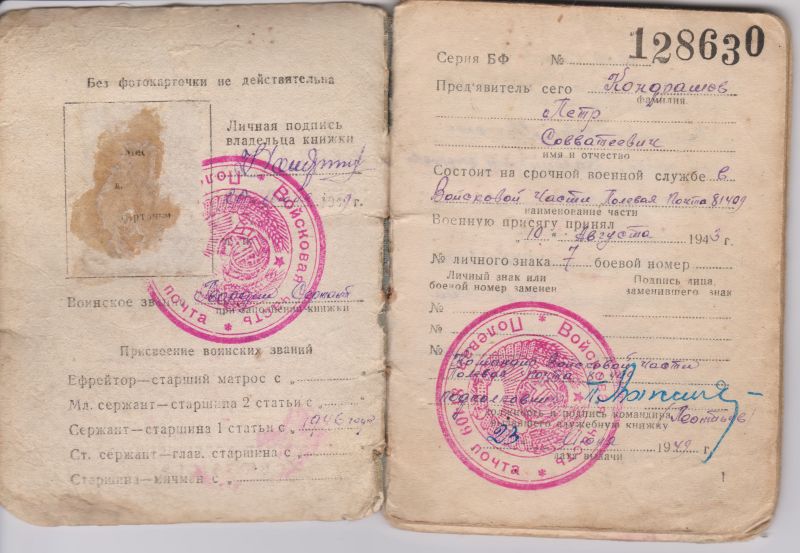 Без фотокарточки не действительна
Личная подпись
владельца книжки
1949 г.
Место
карточки
Войсковая часть * Полевая почта *
Воинское звание Младший Сержант
при заполнении книжки
Присвоение воинских званий
Ефрейтор—старший матрос с „
Мл. сержант—старшина 2 статьи с „
Сержант—старшина 1 статьи с „ 1946 года
Ст. сержант—глав. старшина с „
Старшина—мичман с „
Серия БФ № 128630
Пред'явитель сего Кондрашев
фамилия
Петр
Савватеевич
имя и отчество
Состоит на срочной военной службе в
Войсковой Части Полевая Почта 81409
наименование части
Военную присягу принял
„10“ Августа 1943 г.
№ личного знака 7 боевой номер
Личный знак или
боевой номер заменен
Подпись лица,
заменившего знак
№
№
№
Командир Войсковой части
Полевая почта
подполковник
должность и подпись командира
выдавшего служебную книжку
23 1949 г.
дата выдачи
Войсковая часть * Полевая почта *
1